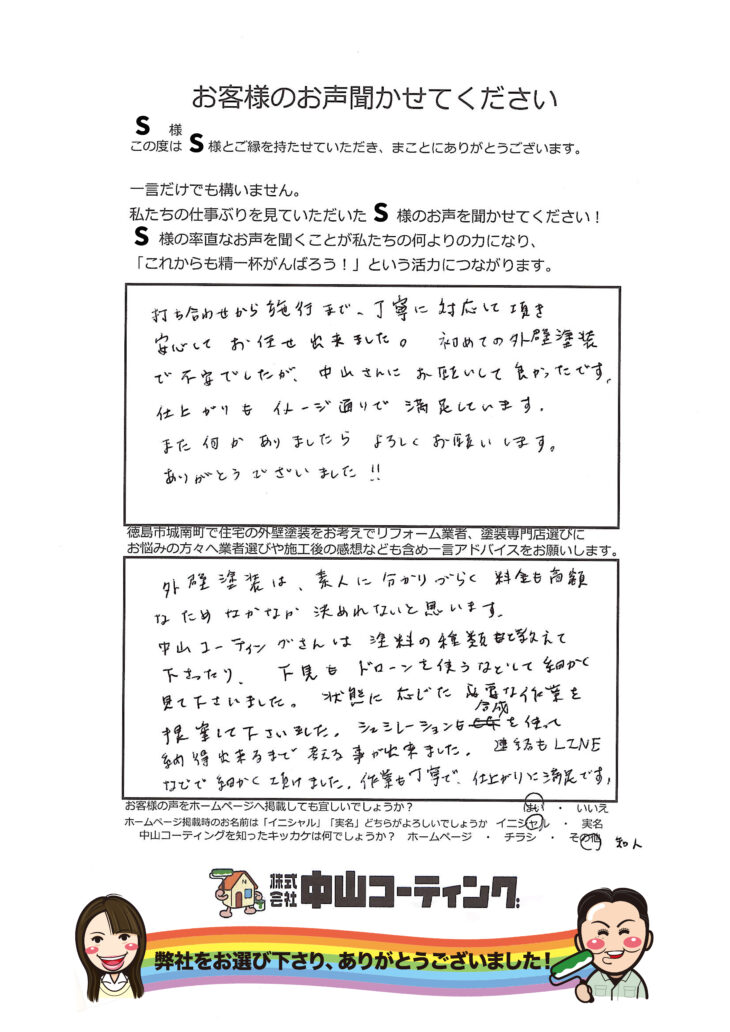 お客様のお声聞かせてください
S 様
この度は S 様とご縁を持たせていただき、まことにありがとうございます。
一言だけでも構いません。
私たちの仕事ぶりを見ていただいた S 様のお声を聞かせてください！
S 様の率直なお声を聞くことが私たちの何よりの力になり、
「これからも精一杯がんばろう！」という活力につながります。
打ち合わせから施行まで、丁寧に対応して頂き
安心してお任せ出来ました。初めての外壁塗装
で不安でしたが、中山さんにお願いして良かったです。
仕上がりもイメージ通りで満足しています。
また何かありましたらよろしくお願いします。
ありがとうございました!!
徳島市城南町で住宅の外壁塗装をお考えでリフォーム業者、塗装専門店選びに
お悩みの方々へ業者選びや施工後の感想なども含め一言アドバイスをお願いします。
外壁塗装は、素人に分かりづらく料金も高額
なためなかなか決めれないと思います。
中山コーティングさんは塗料の種類も教えて
下さったり、下見もドローンを使うなどして細かく
見て下さいました。状態に応じた必要な作業を
提案して下さいました。シュミレーションも合成を使って
納得出来るまで考える事が出来ました。連絡もLINE
などで細かく頂けました。作業も丁寧で、仕上がりに満足です。
お客様の声をホームページへ掲載しても宜しいでしょうか？ はい ・ いいえ
ホームページ掲載時のお名前は「イニシャル」「実名」どちらがよろしいでしょうか イニシャル ・ 実名
中山コーティングを知ったキッカケは何でしょうか？ ホームページ ・ チラシ ・ その他 知人
株式会社 中山コーティング
弊社をお選び下さり、ありがとうございました！